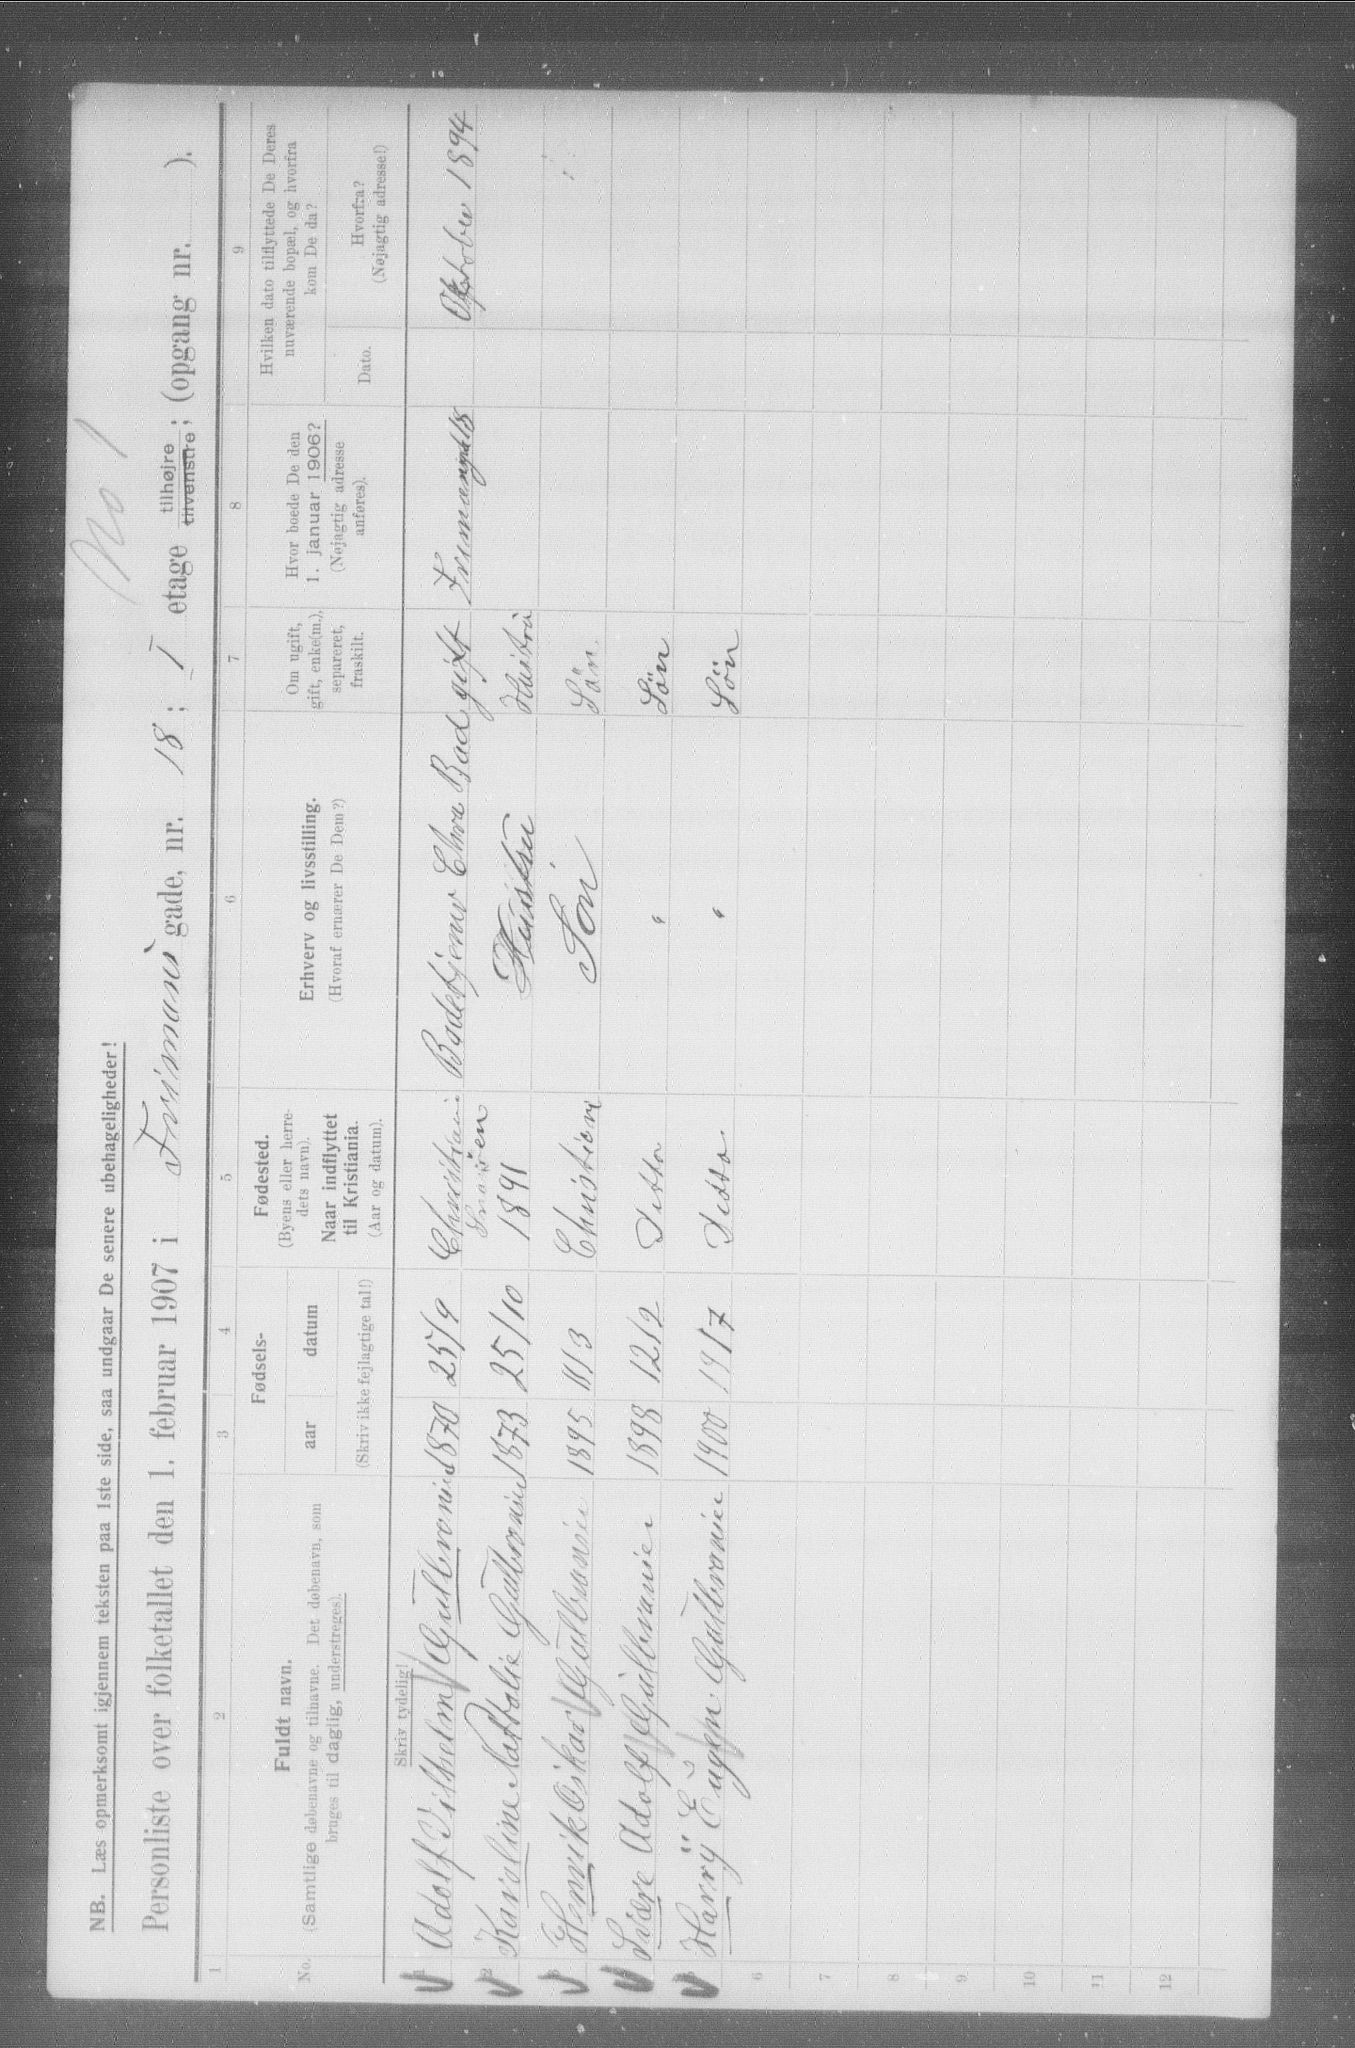 No 1
NB. Læs opmerksomt igjennem teksten paa 1ste side, saa undgaar De senere ubehageligheder!
Personliste over folketallet den 1. februar 1907 i Friimans gade, nr. 18; I etage tilhøjre tilvenstre; (opgang nr. ).
1 2 3 4 5 6 7 8 9
No.
Fuldt navn.
(Samtlige døbenavne og tilnavne. Det døbenavn, som
bruges til daglig, understreges).
Fødsels-
aar datum
(Skriv ikke fejlagtige tal!)
Fødested.
(Byens eller herre-
dets navn).
Naar indflyttet
til Kristiania.
(Aar og datum).
Erhverv og livsstilling.
(Hvoraf ernærer De Dem?)
Om ugift,
gift, enke(m.),
separeret,
fraskilt.
Hvor boede De den
1. januar 1906?
(Nøjagtig adresse
anføres).
Hvilken dato tilflyttede De Deres
nuværende bopæl, og hvorfra
kom De da?
Dato.
Hvorfra?
(Nøjagtig adresse!)
Skriv tydelig!
1 Adolf Vilhelm Gulbransen 1870 25/9 Christiani Badetjener Chra Bad gift Oktober 1894
2 Karoline Nathalie Gulbransen 1873 25/10 1891 Hustru Hustru
3 Henrik Oskar Gulbransen 1895 11/3 Christiani Søn Søn
4 Svære Adolf Gulbransen 1898 12/2 Ditto " Søn
5 Harrÿ Eugen Gulbransen 1900 19/7 Ditto. " Søn
6
7
8
9
10
11
12